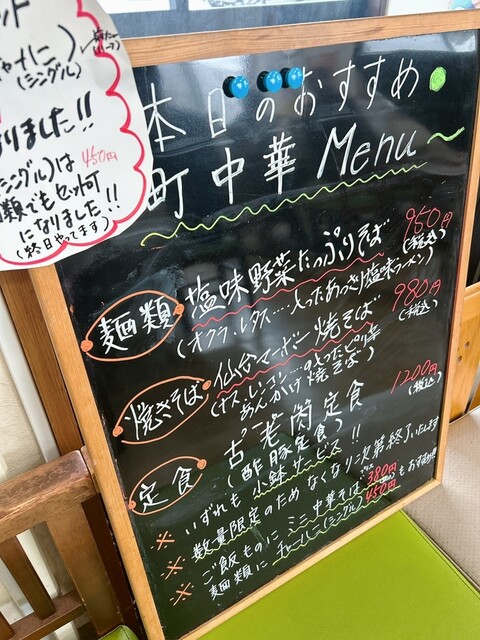 ット
ャーハに)
(シングル)
なりました!!
シングル)は 450円
類でもセット可
になりました!!
(終日やってます)
本日のおすすめ
町中華 Menu
麺類 塩味野菜たっぷりそば 950円
(オクラ、レタス…入ったあっさり塩味ラーメン) (税込)
焼きそば 仙台マーボー焼そば 980円
(税込)
あんかけ焼そば)
定食 古老肉定食 1200円
(酢豚定食) (税込)
※ いずれも小鉢サービス!!
※ 数量限定のためなくなり次第終了いたします
※ ご飯ものにミニ中華そば 380円
麺類にチャーハン(シングル) 450円 もおすすめ